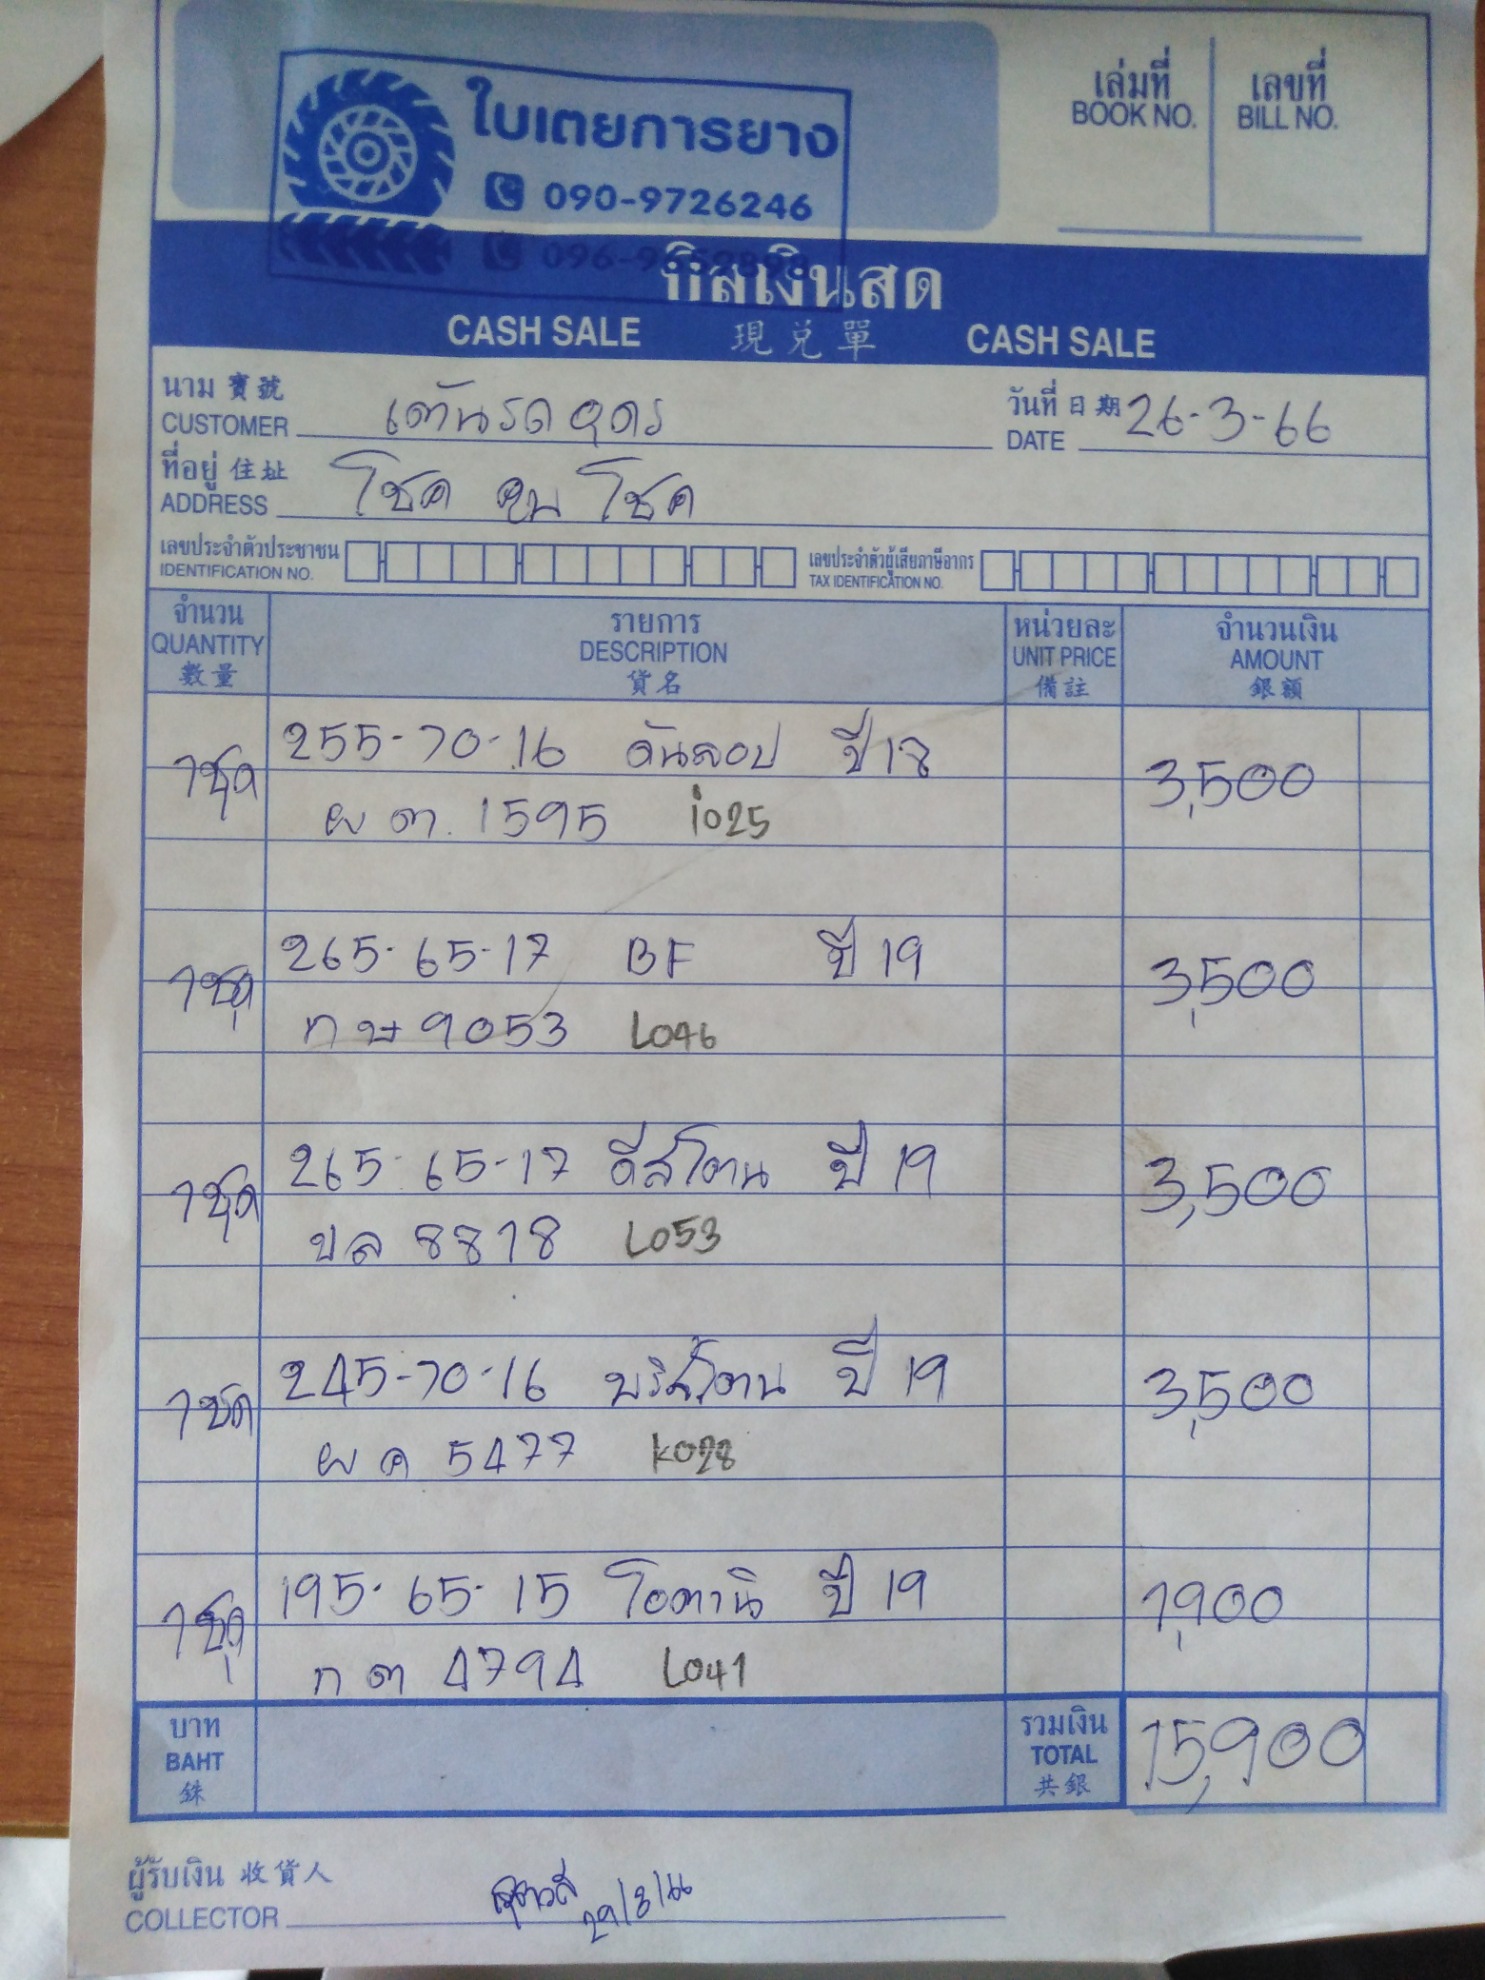 ใบเตยการยาง
090-9726246
เล่มที่ เลขที่
BOOK NO. BILL NO.
บิลเงินสด
CASH SALE 現兌單 CASH SALE
นาม 寶號
CUSTOMER เต้นรถอุดร
วันที่ 日期 26-3-66
DATE
ที่อยู่ 住址
ADDRESS โชค คูน โชค
เลขประจำตัวประชาชน เลขประจำตัวผู้เสียภาษีอากร
IDENTIFICATION NO. TAX IDENTIFICATION NO.
จำนวน รายการ หน่วยละ จำนวนเงิน
QUANTITY DESCRIPTION UNIT PRICE AMOUNT
數量 貨名 備註 銀額
1ชุด 255-70-16 ดันลอป ปี 18 3,500
ผต. 1595 i025
1ชุด 265-65-17 BF ปี 19 3,500
กษ 9053 L046
1ชุด 265-65-17 ดีสโตน ปี 19 3,500
ขล 8818 L053
1ชุด 245-70-16 บริสโตน ปี 19 3,500
ผค 5477 k028
1ชุด 195-65-15 โอตานิ ปี 19 1,900
กต 4794 L041
บาท รวมเงิน 15,900
BAHT TOTAL
銖 共銀
ผู้รับเงิน 收貨人
COLLECTOR 29/3/66